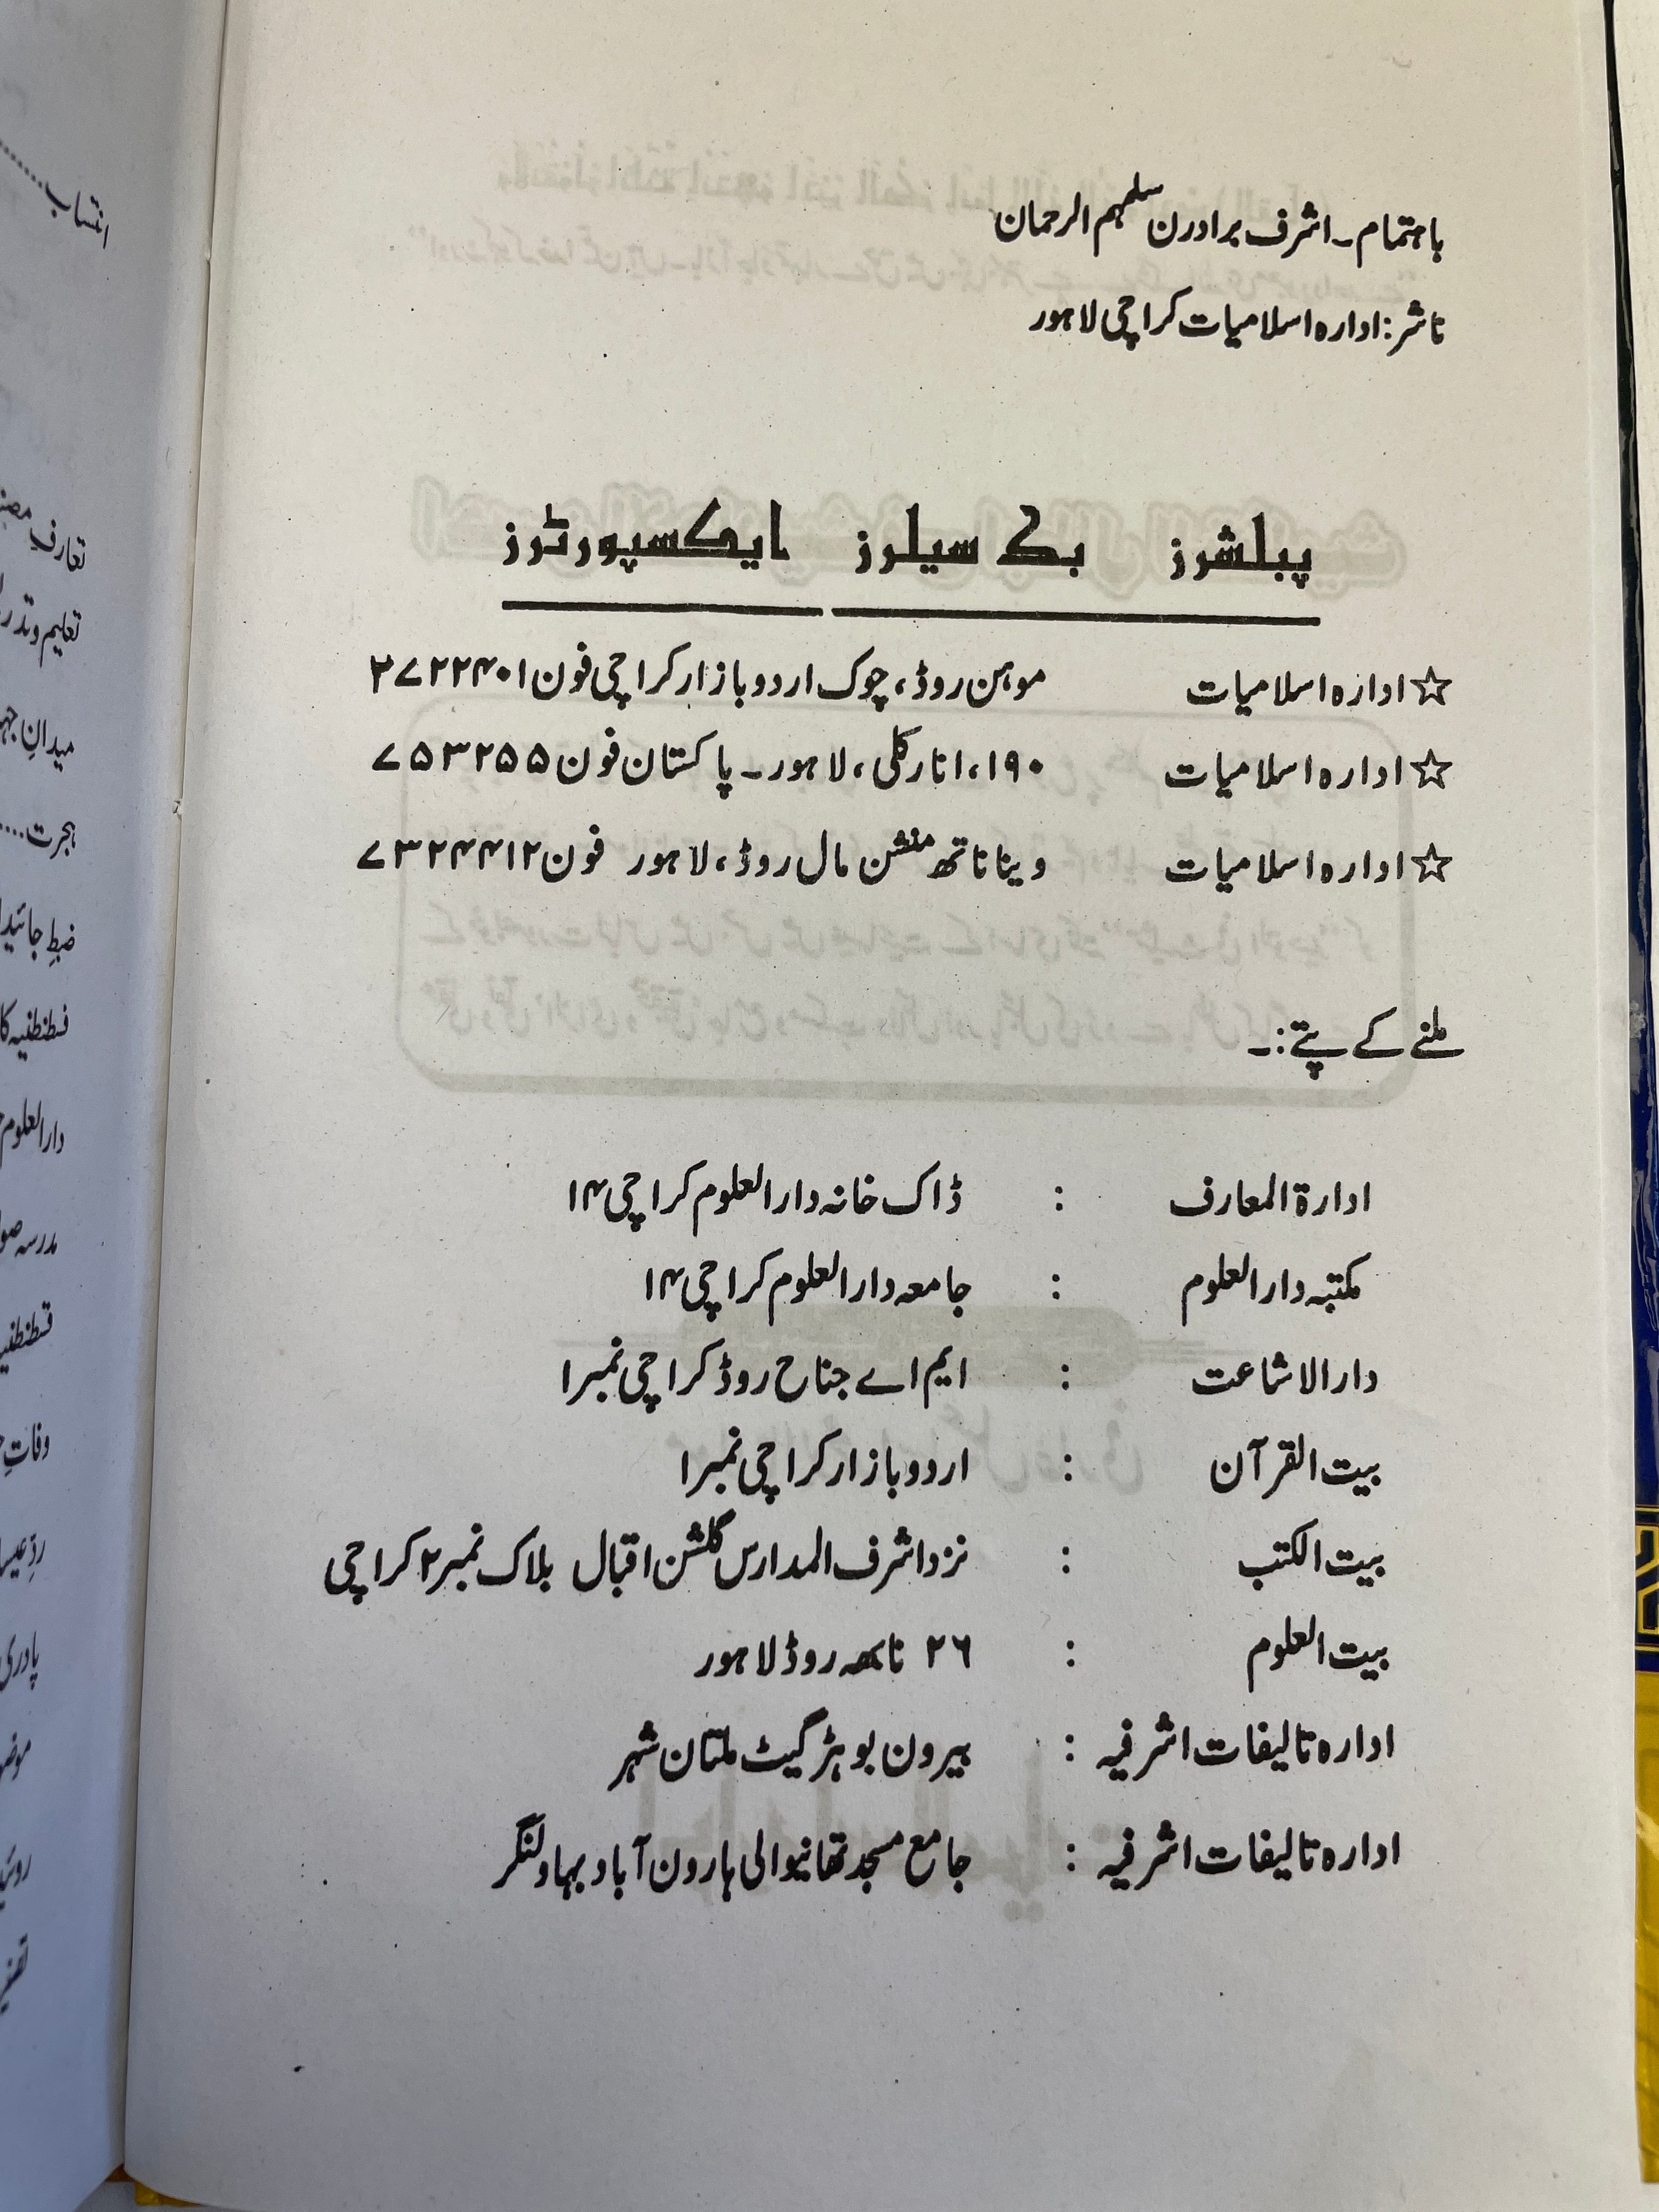 باہتمام۔اشرف برادرن سلمہم الرحمان
ناشر:ادارہ اسلامیات کراچی لاہور
پبلشرز بک سیلرز ایکسپورٹرز
☆ ادارہ اسلامیات موہن روڈ، چوک اردو بازار کراچی فون ۲۷۲۲۴۰۱
☆ ادارہ اسلامیات ۱۹۰، انارکلی، لاہور۔پاکستان فون ۷۵۳۲۵۵
☆ ادارہ اسلامیات دینا ناتھ منشن مال روڈ، لاہور فون ۷۳۲۴۴۱۲
ملنے کے پتے:۔
ادارۃ المعارف : ڈاک خانہ دارالعلوم کراچی ۱۴
مکتبہ دارالعلوم : جامعہ دارالعلوم کراچی ۱۴
دارالاشاعت : ایم اے جناح روڈ کراچی نمبر۱
بیت القرآن : اردو بازار کراچی نمبر۱
بیت الکتب : نزد اشرف المدارس گلشن اقبال بلاک نمبر۲ کراچی
بیت العلوم : ۲۶ نابھہ روڈ لاہور
ادارہ تالیفات اشرفیہ : بیرون بوہڑ گیٹ ملتان شہر
ادارہ تالیفات اشرفیہ : جامع مسجد تھانیوالی ہارون آباد بہاولنگر
انتساب
تعارفِ
ہجرت
ضبطِ
دارالعلوم
مدرسہ